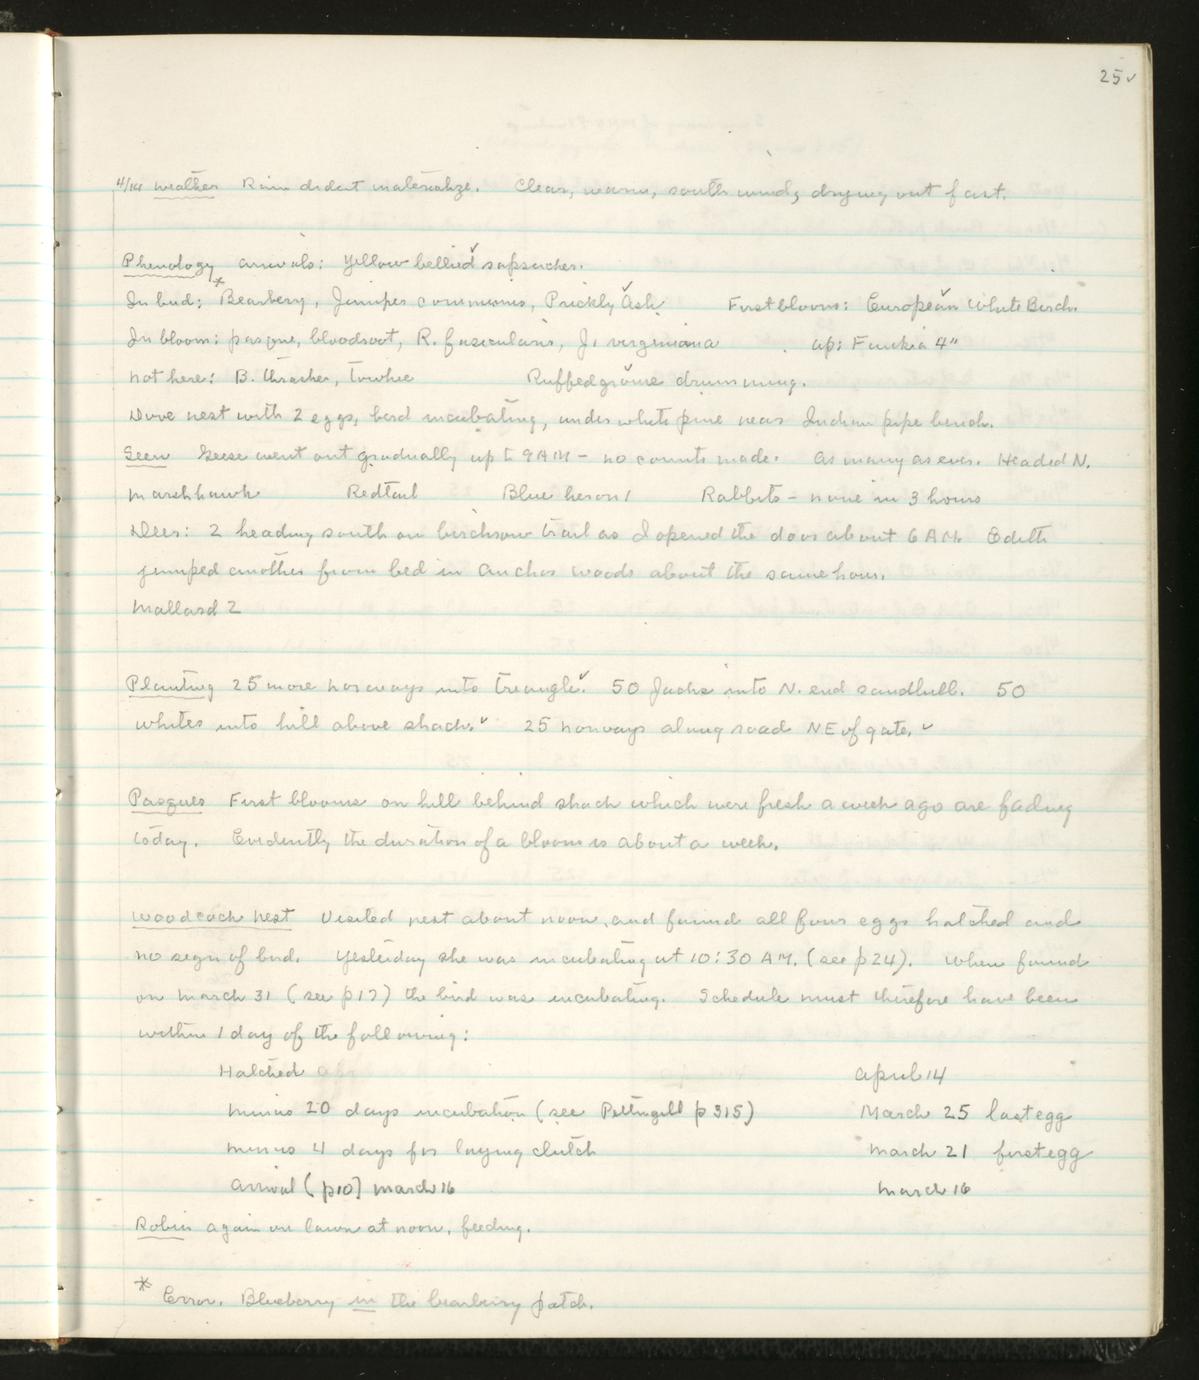 25✓
4/14 Weather Rain didn't materialize. Clear, warm, south wind, drying out fast.
Phenology arrivals: Yellow bellied✓ sapsucker.
In bud: *Bearberry, Juniper communis, Prickly Ash✓ First bloom: European✓ White Birch
In bloom: pasque, bloodroot, R. fasicularis, J. virginiana up: Funkia 4"
Not here: B. thrasher, Towhee Ruffed grouse✓ drumming.
Dove nest with 2 eggs, bird incubating, under white pine near Indian pipe bench.
Seen Geese went out gradually up to 9 AM - no counts made. As many as ever. Headed N.
Marsh hawk Redtail Blue heron 1 Rabbits - none in 3 hours
Deer: 2 heading south on birchrow trail as I opened the door about 6 AM. Edith
jumped another from bed in Anchor woods about the same hour.
Mallard 2
Planting 25 more norways into triangle.✓ 50 Jacks into N. end sandhill. 50
whites into hill above shack.✓ 25 norways along road NE of gate.✓
Pasques First blooms on hill behind shack which were fresh a week ago are fading
today. Evidently the duration of a bloom is about a week.
Woodcock Nest Visited nest about noon, and found all four eggs hatched and
no sign of bird. Yesterday she was incubating at 10:30 AM. (see p 24). When found
on March 31 (see p 17) the bird was incubating. Schedule must therefore have been
within 1 day of the following:
Hatched April 14
minus 20 days incubation (see Pettingill p 315) March 25 last egg
minus 4 days for laying clutch March 21 first egg
Arrival (p10) March 16 March 16
Robin again on lawn at noon, feeding.
* Error. Blueberry in the bearberry patch.